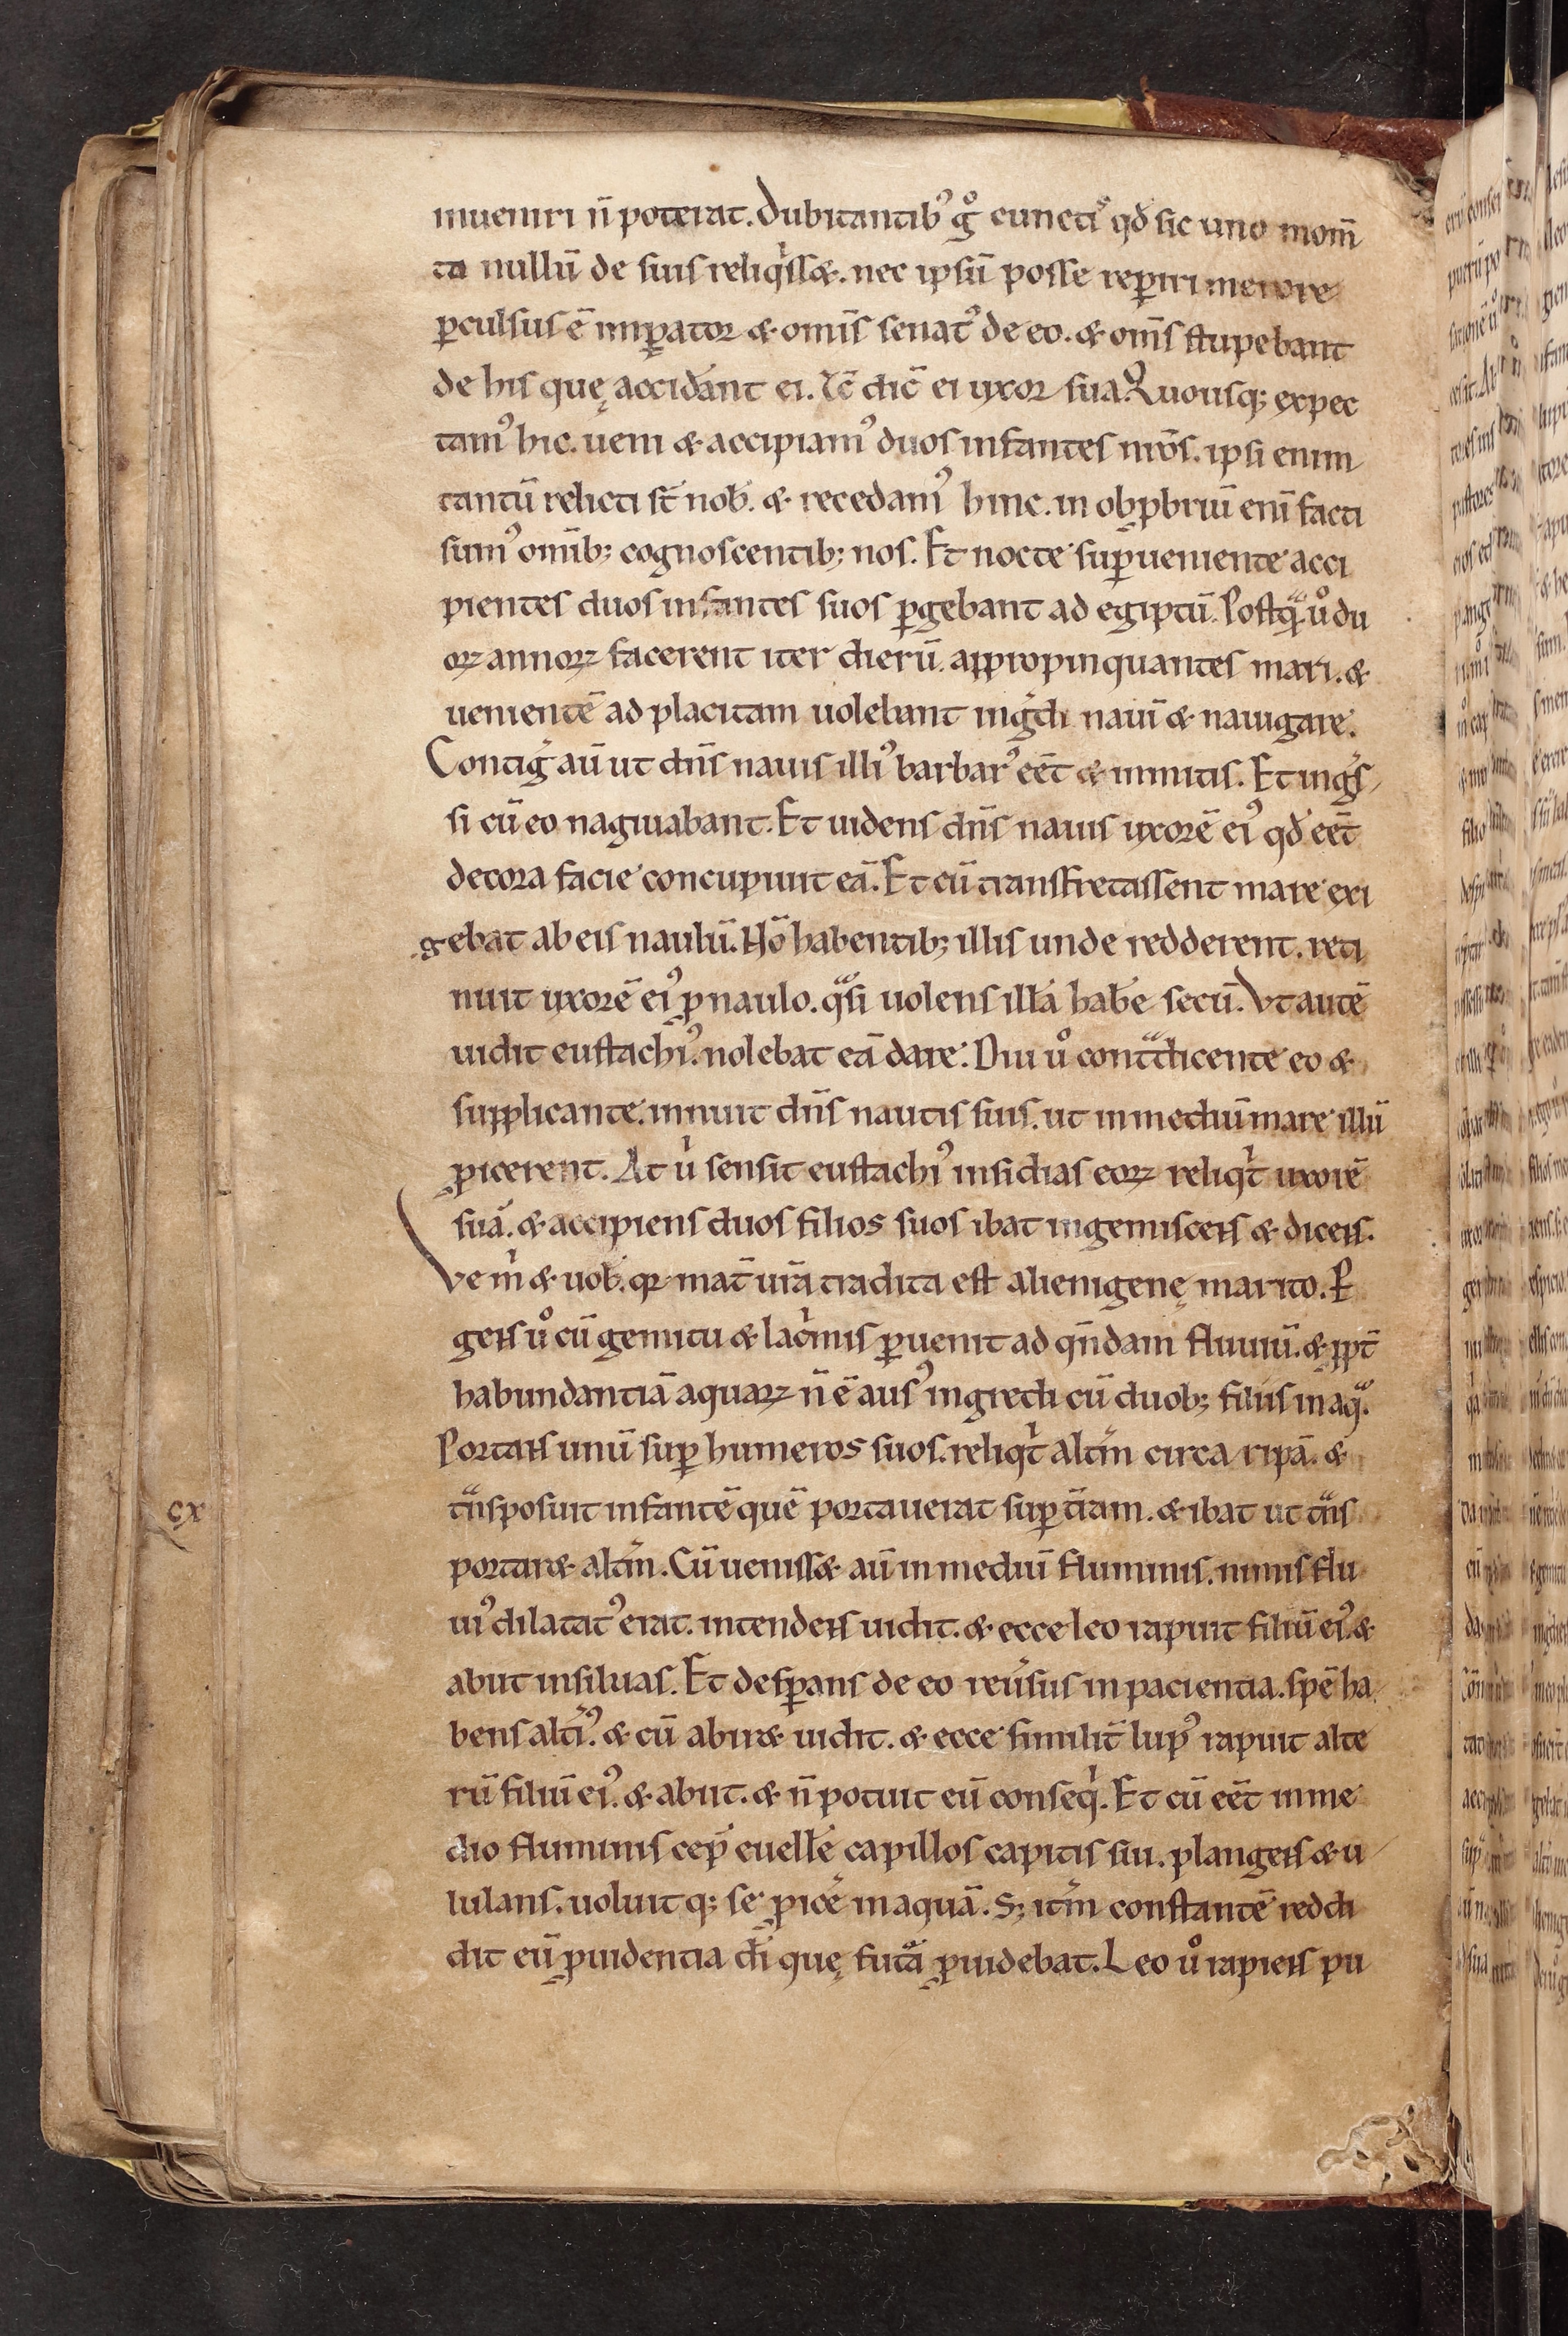 inueniri n̄ poterat. Dubitantibꝰ gͦ cunctis qd̕ sic uno mom̄
ta nullū de suis reliqͥss&. nec ipsū posse rep̱iri merore
p̱culsus ē imp̱ator & omīs senatꝰ de eo. & om̄s stupebant
de his quę accidānt ei. Tc̄ dic̄ ei uxor sua. Quousq; expec
tamꝰ hic. ueni & accipiamꝰ duos infantes nr̄os. ipsi enim
tantū relicti st̄ nob̄. & recedamꝰ hinc. in obꝓbriū enī facti
sumꝰ omīb; cognoscentib; nos. Et nocte sup̱ueniente acci
pientes duos infantes suos p̱gebant ad egiptū. Postqᵃ̄ uͦ du
oꝝ annoꝝ facerent iter dierū. appropinquantes mari. &
uenientē ad placitam uolebant ingͥdi nauī & nauigare.
Contig̕ aū ut dn̄s nauis illiꝰ barbarꝰ eēt & inmitis. Et ingͥs
si cū eo nagiuabant. Et uidens dn̄s nauis uxorē eiꝰ qd̕ eēt
decora facie concupiuit eā. Et cū transfretassent mare exi
gebat ab eis naulū. Nō habentib; illis unde redderent. reti
nuit uxorē eiꝰ ꝓ naulo. qᵃsi uolens illā hab̄e secū. Vt autē
uidit eustachiꝰ. nolebat eā dare. Diu uͦ contᵃdicente eo &
supplicante. innuit dn̄s nautis suis. ut in mediū mare illū
ꝓicerent. At uͥ sensit eustachiꝰ insidias eoꝝ reliqͥt uxorē
suā. & accipiens duos filios suos ibat ingemiscens & dicens.
Ve mͥ & uob̄. qꝛ mat̄ urā tradita est alienigenę marito. P̱
gens uͦ cū gemitu & lacͥmis p̱uenit ad qn̄dam fluuiū. & ꝓpt̄
habundantiā aquaꝝ n̄ ē ausꝰ ingredi cū duob; filiis in aqᵃ.
Portans unū sup̱ humeros suos. reliqͥt altm̄ circa ripā. &
tᵃnsposuit infantē quē portauerat sup̱ tr̄am. & ibat ut tᵃns
portar& altm̄. Cū ueniss& aū in mediū fluminis. nimis flu
uiꝰ dilatatꝰ erat. intendens uidit. & ecce leo rapuit filiū eiꝰ. &
abiit in siluas. Et desp̱ans de eo reūsus in pacientia. spē ha
bens altiꝰ. & cū abir& uidit. & ecce similit̄ lupꝰ rapuit alte
rū filiū eiꝰ. & abiit. & n̄ potuit eū conseqͥ. Et cū eēt in me
dio fluminis cep̄ euelle̕ capillos capitis sui. plangens & u
lulans. uoluitq; se ꝓice̕ in aquā. S; itm̄ constantē reddi
dit eū ꝓuidentia di̅ quę futᵃ ꝓuidebat. Leo uͦ rapiens pu
cx